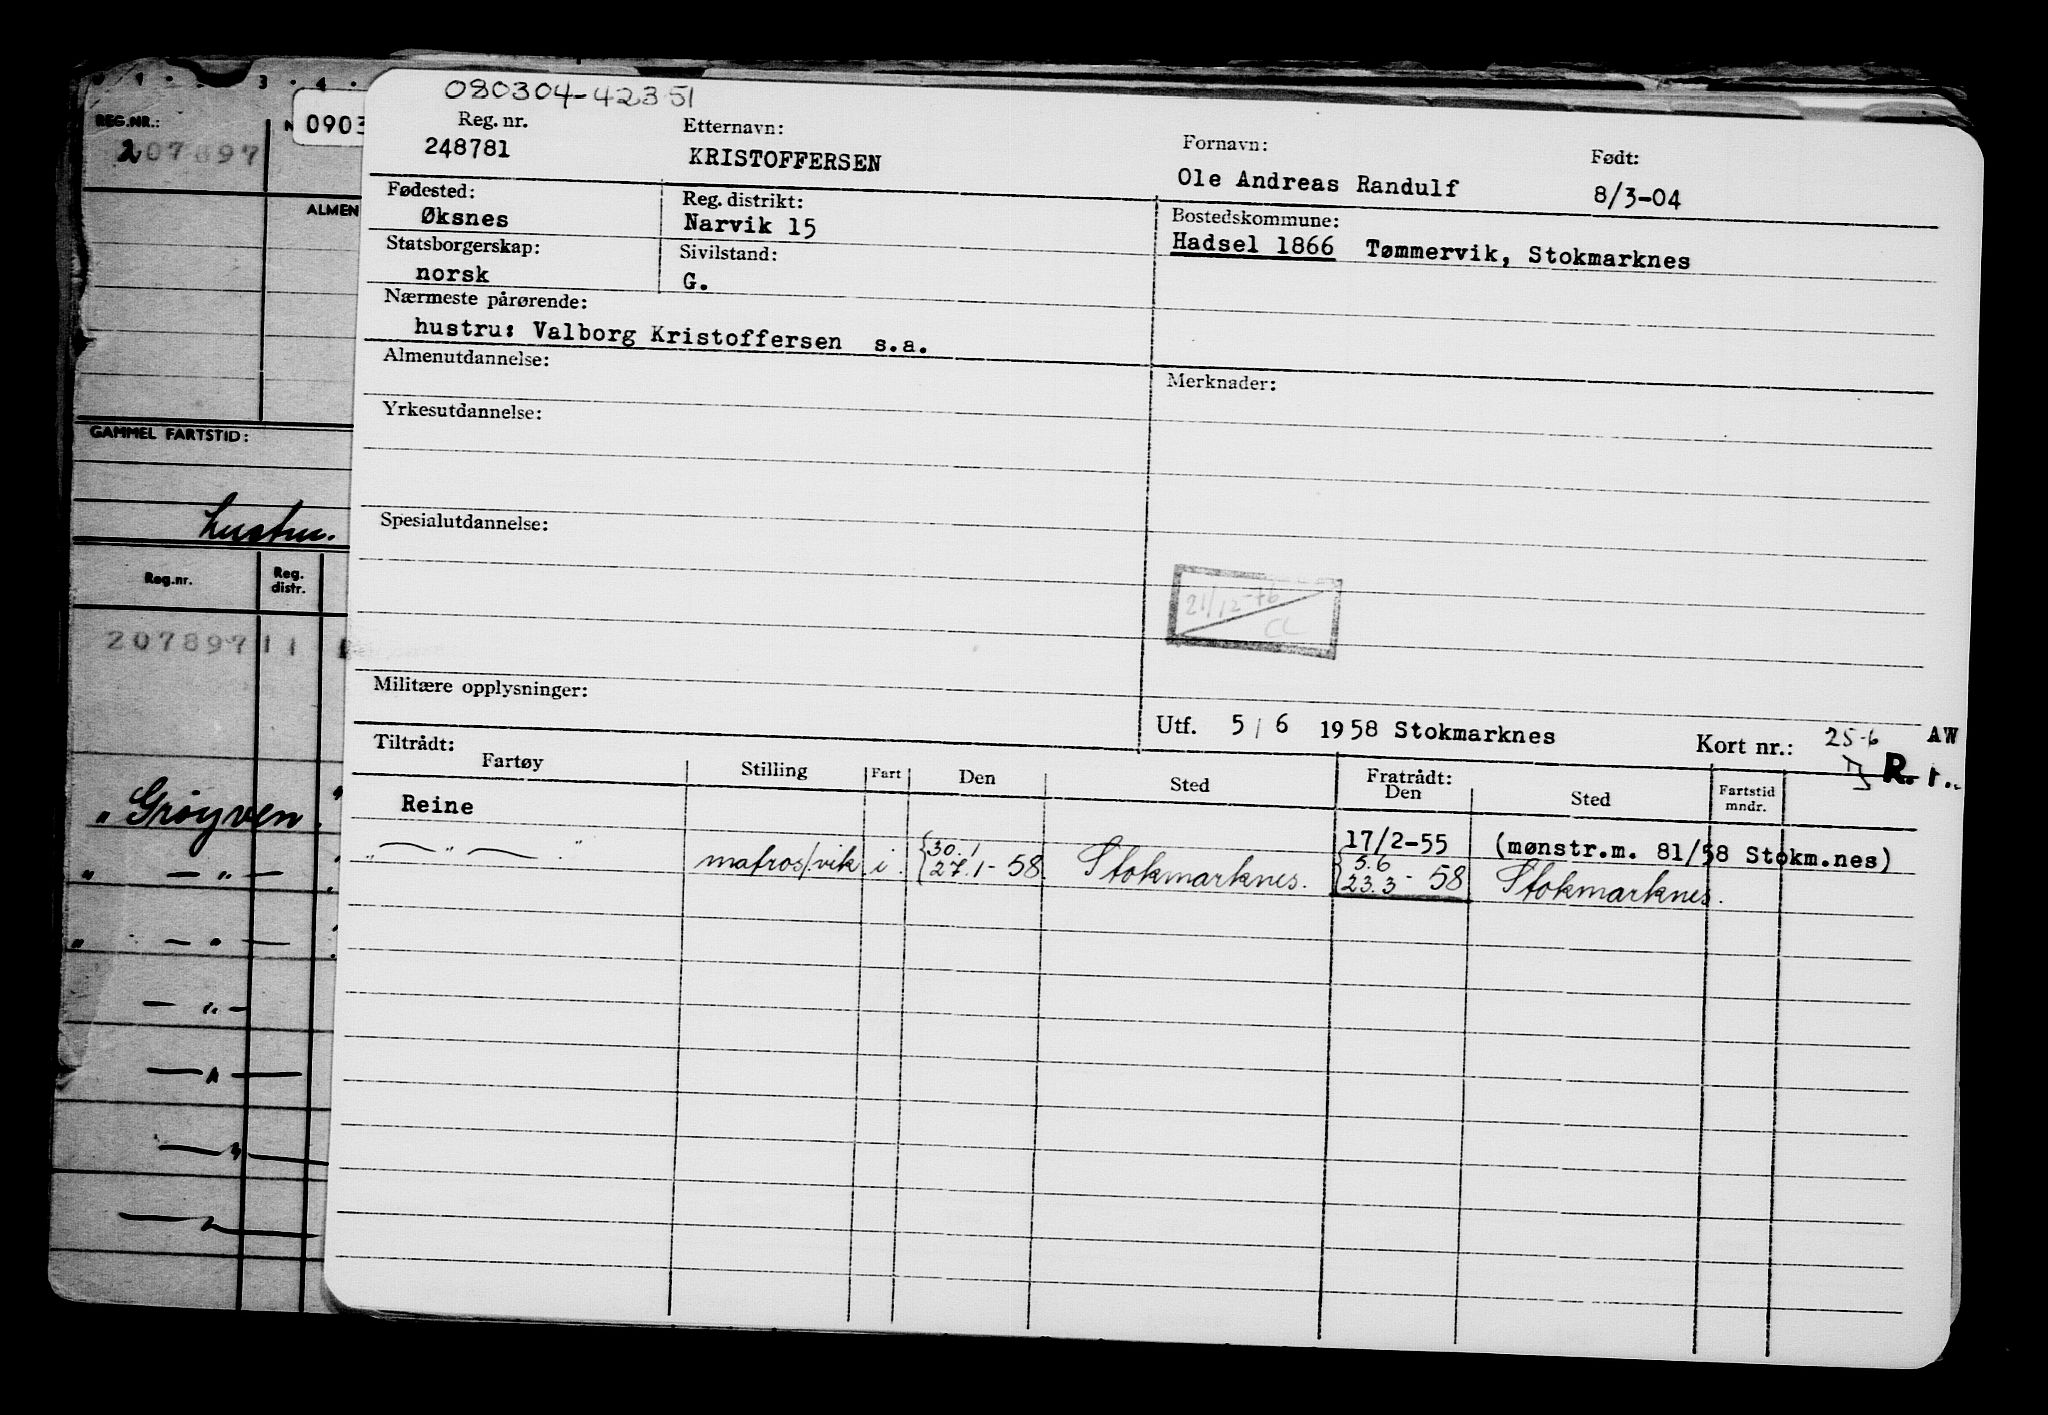 080304-42351
Reg. nr.
248781
Etternavn:
KRISTOFFERSEN
Fornavn:
Ole Andreas Randulf
Født:
8/3-04
Fødested:
Øksnes
Reg. distrikt:
Narvik 15
Bostedskommune:
Hadsel 1866 Tømmervik, Stokmarknes
Statsborgerskap:
norsk
Sivilstand:
G.
Nærmeste pårørende:
hustru: Valborg Kristoffersen s.a.
Almenutdannelse:
Merknader:
Yrkesutdannelse:
Spesialutdannelse:
21/12-76
CL
Militære opplysninger:
Utf. 5/6 1958 Stokmarknes
Kort nr.:
25-6
AW
R. r.
Tiltrådt:
Fartøy
Stilling
Fart
Den
Sted
Fratrådt:
Den
Sted
Fartstid
mndr.
Reine
17/2-55 (mønstr.m. 81/58 Stokm.nes)
— " — " matros/vik i. {30.1 27.1-58 Stokmarknes. {5.6 23.3-58 Stokmarknes.
3 . 4 .
REG.NR.:
0903
207897
ALMEN
GAMMEL FARTSTID:
hustru.
Reg.nr.
Reg.
distr.
207897 11
"Grøyven"
" — " —
" — " —
— " —
— " —
— " —
— " —